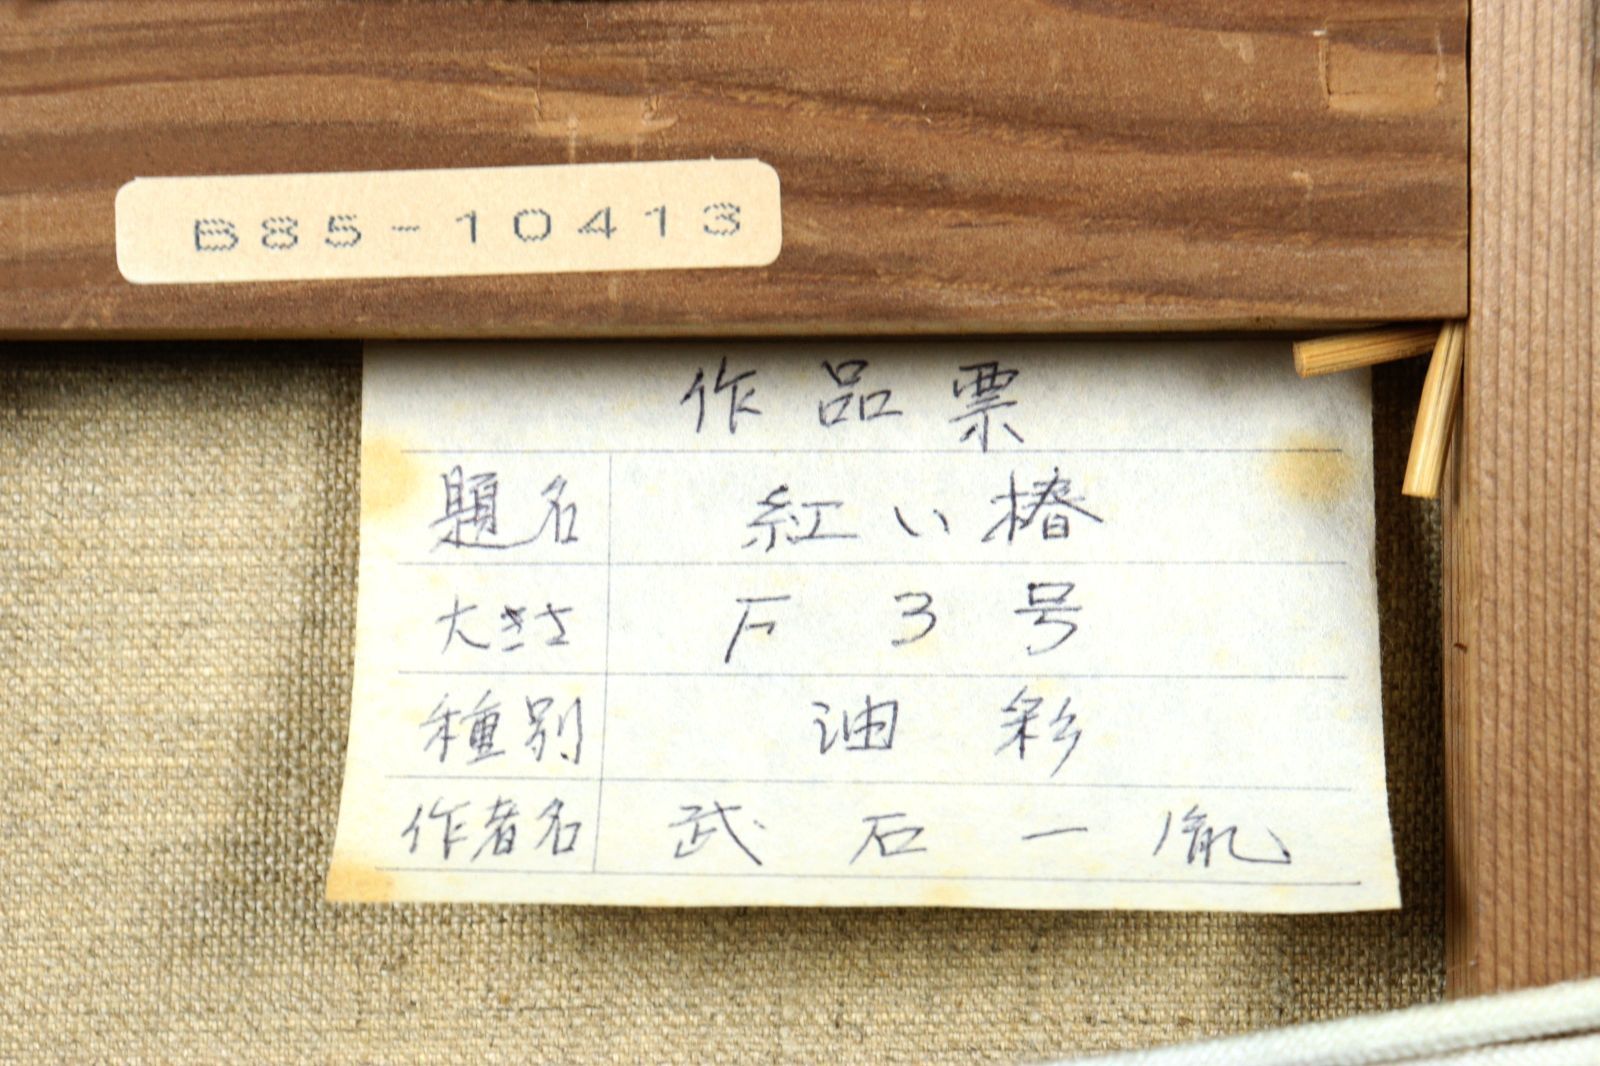 B85-10413
作品票
題名 紅い椿
大きさ F 3号
種別 油彩
作者名 武石一胤